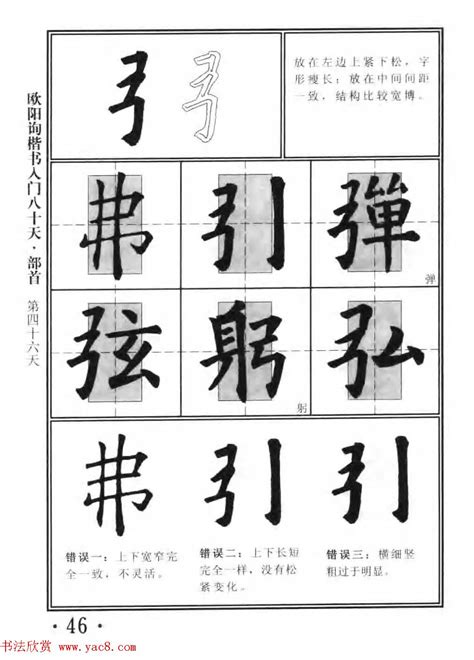 欧阳询楷书入门八十天·部首 第四十六天
弓
放在左边上紧下松，字
形瘦长；放在中间间距
一致，结构比较宽博。
弗 引 彈
弹
弦 躬 弘
躬
弗 引 引
错误一：上下宽窄完
全一致，不灵活。
错误二：上下长短
完全一样，没有松
紧变化。
错误三：横细竖
粗过于明显。
·46·
书法欣赏 www.yac8.com